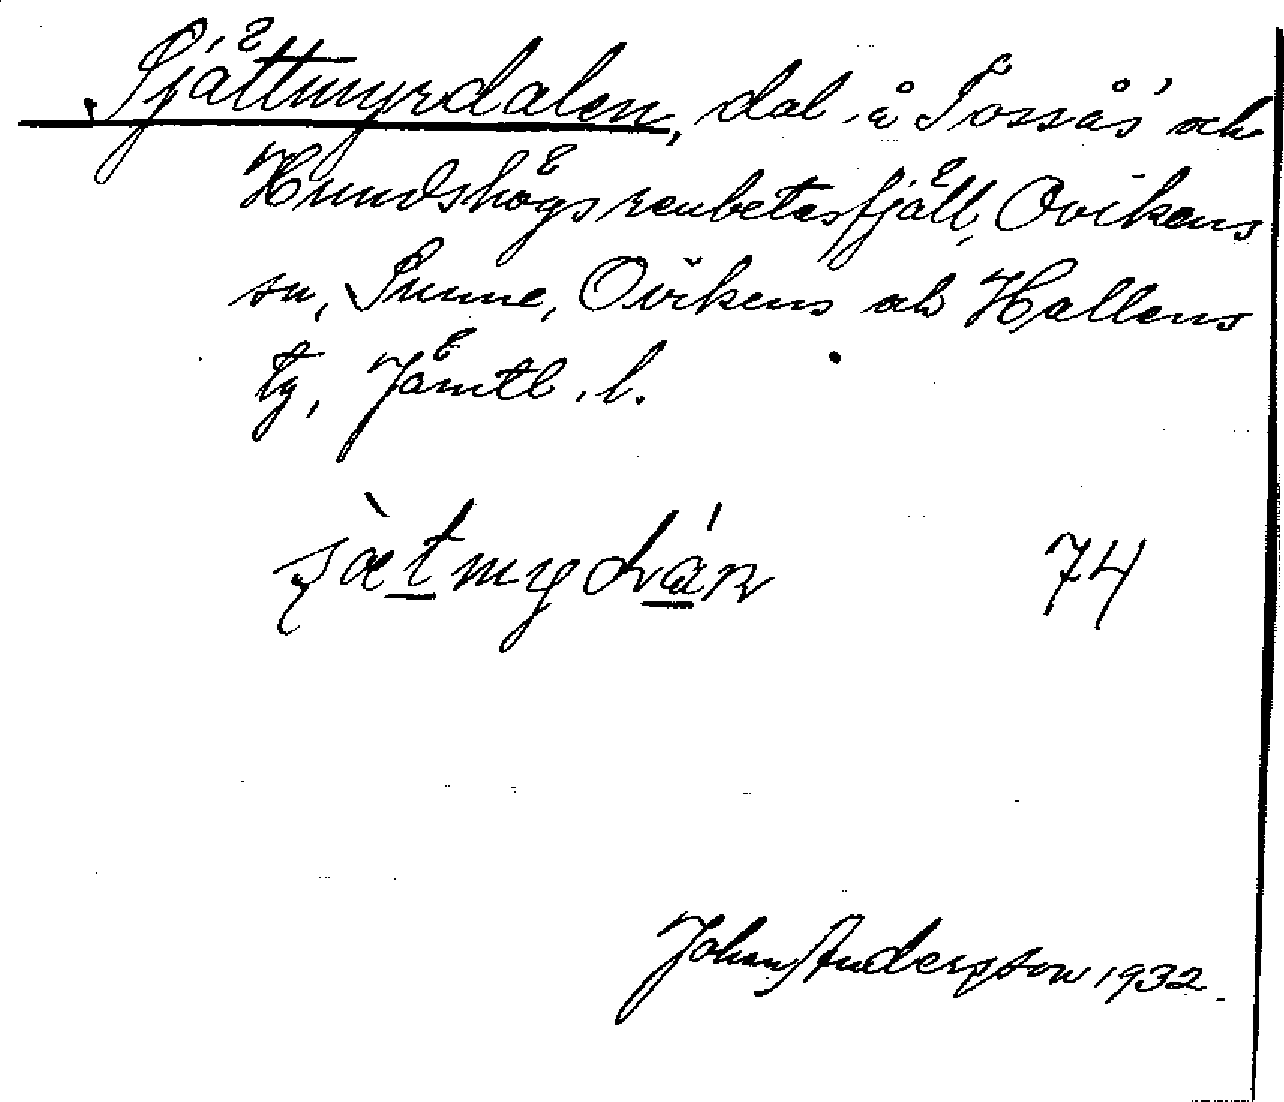 Sjättmyrdalen, dal å Tossås' och
Hundshögs renbetesfjäll, Ovikens
sn, Sunne, Ovikens och Hallens
tg, Jämtl. l.
74
Johan Anderson 1932.